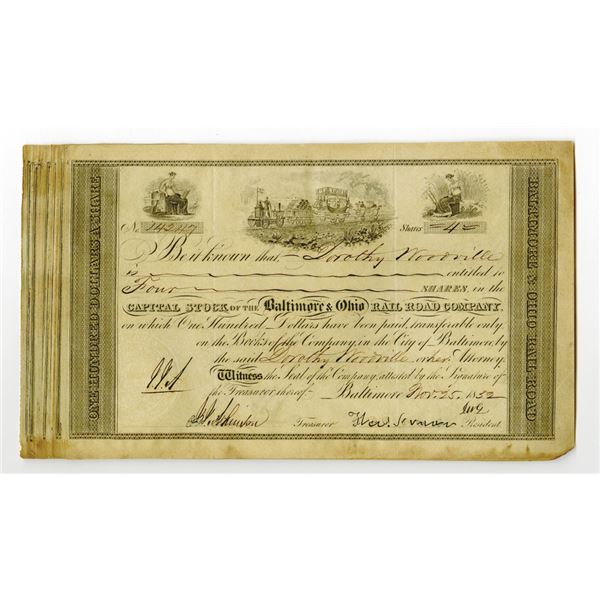 ONE HUNDRED DOLLARS A SHARE
BALTIMORE & OHIO RAIL ROAD
No. Shares 4
Be it known that Dorothy Woodville
is entitled to
Four SHARES, in the
CAPITAL STOCK OF THE Baltimore & Ohio RAIL ROAD COMPANY,
on which One Hundred Dollars have been paid, transferable only
on the Books of the Company, in the City of Baltimore, by
the said Dorothy Woodville or her Attorney.
Witness the Seal of the Company, attested by the Signature of
the Treasurer thereof. Baltimore Nov. 25. 1852
Treasurer President